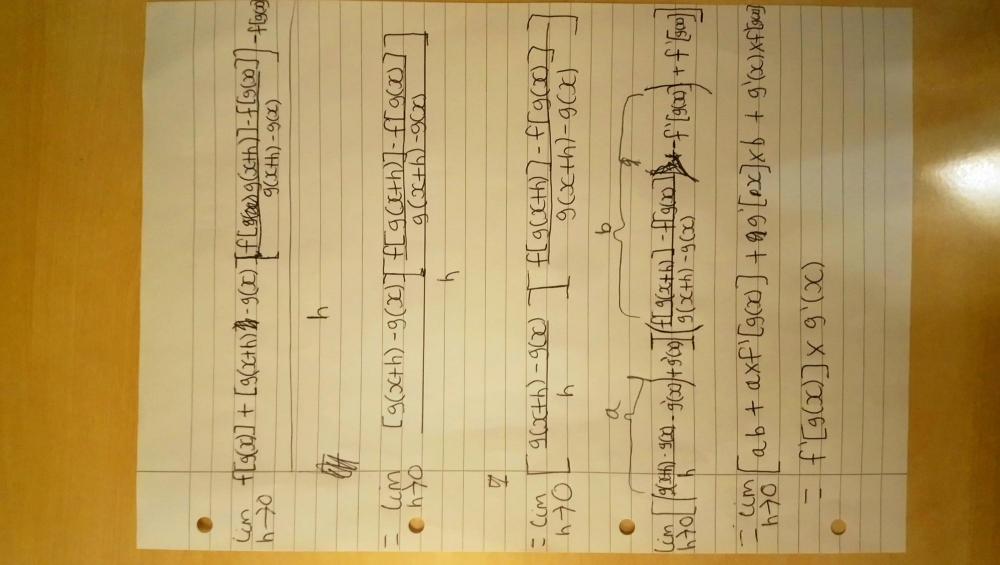 lim h→0 f[g(x)] + [g(x+h) - g(x)] [f[g(x+h)] - f[g(x)] / g(x+h) - g(x)] - f[g(x)]
h
= lim h→0 [g(x+h) - g(x)] [f[g(x+h)] - f[g(x)] / g(x+h) - g(x)]
h
= lim h→0 [g(x+h) - g(x) / h] [f[g(x+h)] - f[g(x)] / g(x+h) - g(x)]
a b
lim h→0 [(g(x+h) - g(x) / h - g'(x) + g'(x)] [(f[g(x+h)] - f[g(x)] / g(x+h) - g(x) - f'[g(x)]) + f'[g(x)]]
= lim h→0 [ab + a×f'[g(x)] + g'[x]×b + g'(x)×f'[g(x)]
= f'[g(x)] × g'(x)